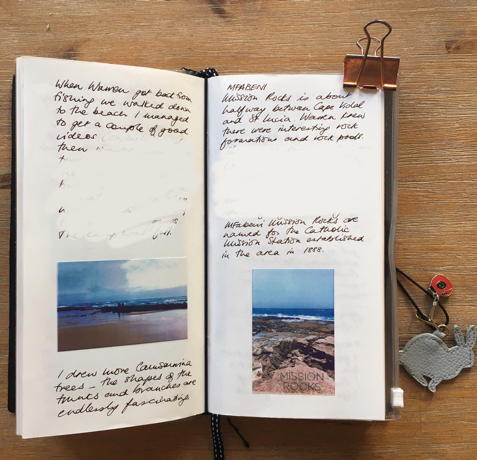 When Warren got back from
fishing we walked down
to the beach I managed
to get a couple of good
videos
then
I drew more Casuarina
trees – the shapes of the
trunks and branches are
endlessly fascinating
MFABENI
Mission Rocks is about
halfway between Cape Vidal
and St Lucia Warren knew
there were interesting rock
formations and rock pools.
Mfabeni Mission Rocks are
named for the Catholic
Mission Station established
in the area in 1888.
MISSION
ROCKS